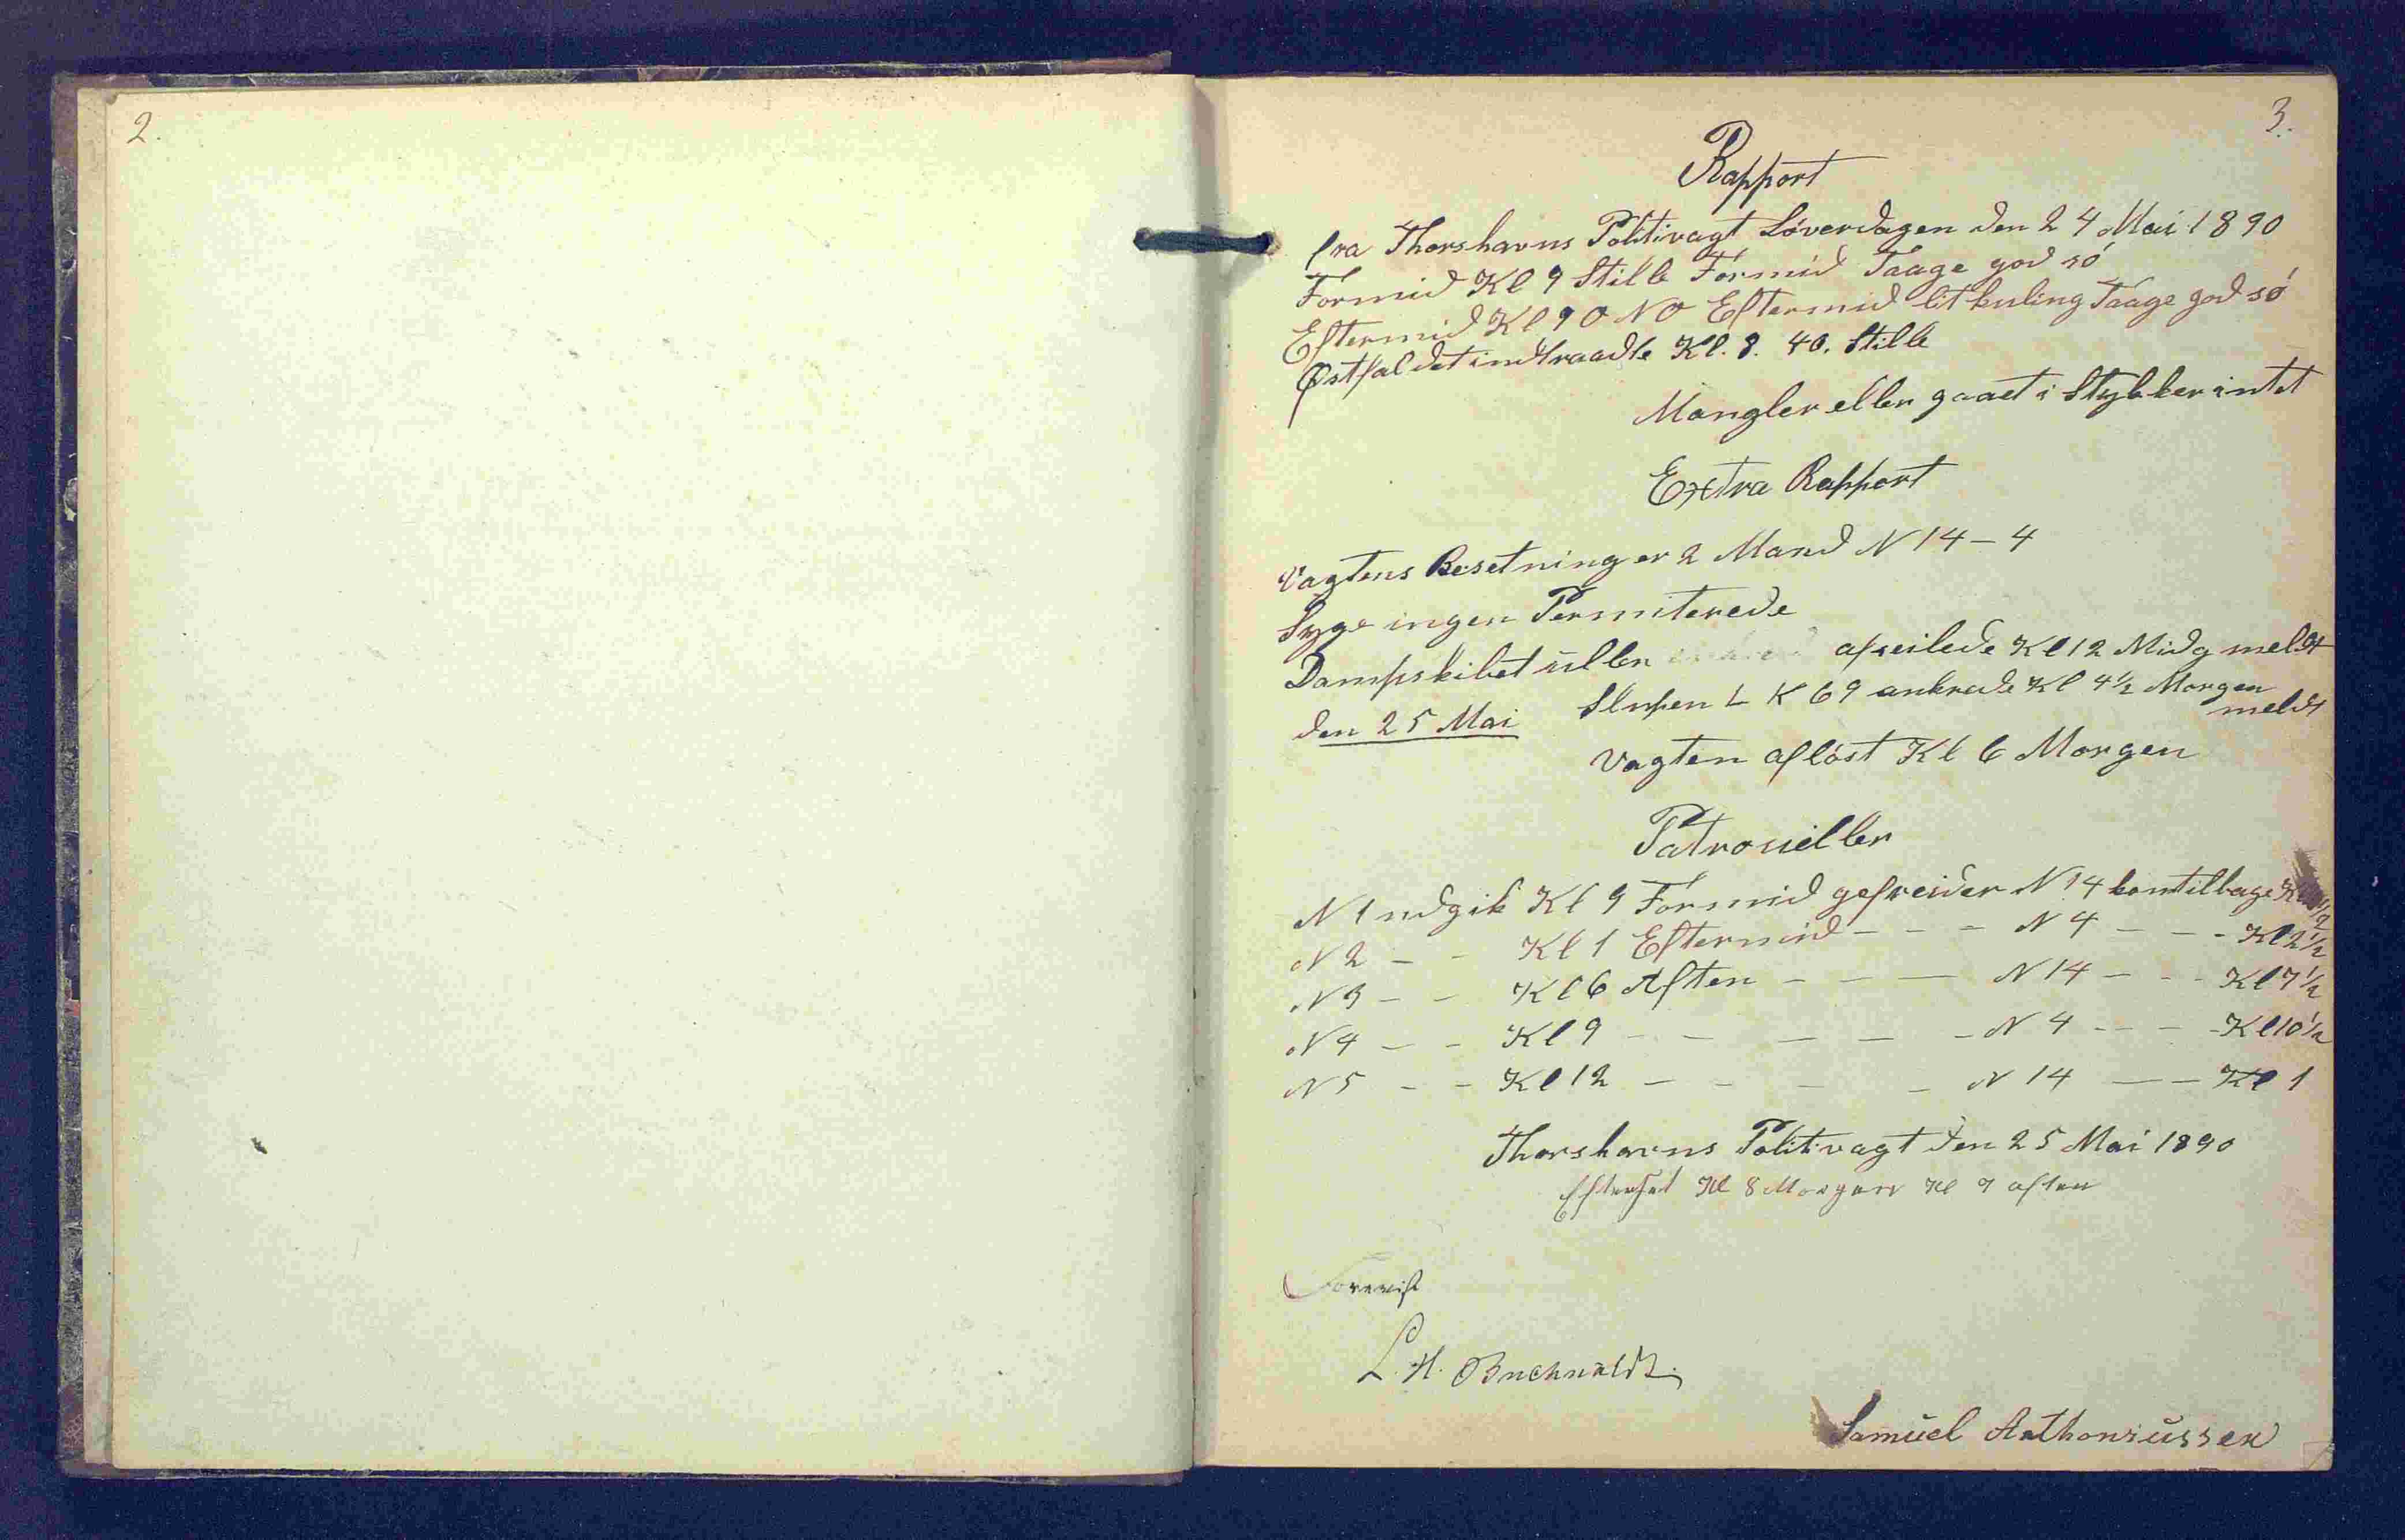 2.
3.
Rapport
fra Thorshavns Politivagt Löverdagen den 24 Mai 1890
Formid Kl 9 Stille Formid Taage god só
Eftermid Kl 9 O N O Eftermid lit kuling Taage god só
Østfaldet indtraadte Kl. 8. 40. Stille
Mangler eller gaaet i Stykker intet
Extra Rapport
Vagtens Besetning er 2 Mand N 14 - 4
Syge ingen Permiterede
Dampskibet afseilede Kl 12 Midg meldt
den 25 Mai Slupen L K 69 ankrade Kl 4½ Morgen meldt
Vagten aflöst Kl 6 Morgen
Patrouiller
N 1 udgik Kl 9 Formid gefreider N 14 kom tilbage Kl
N 2 - - Kl 1 Eftermid - - - N 4 - - - Kl 2½
N 3 - - Kl 6 Aften - - - N 14 - - - Kl 7½
N 4 - - Kl 9 - - - - - N 4 - - - Kl 10½
N 5 - - Kl 12 - - - - N 14 - - Kl 1
Thorshavns Politivagt den 25 Mai 1890
Efterset Kl 8 Morgen Kl 9 aften
Forevist
L. H. Buchwaldt.
Samuel Anthoniussen